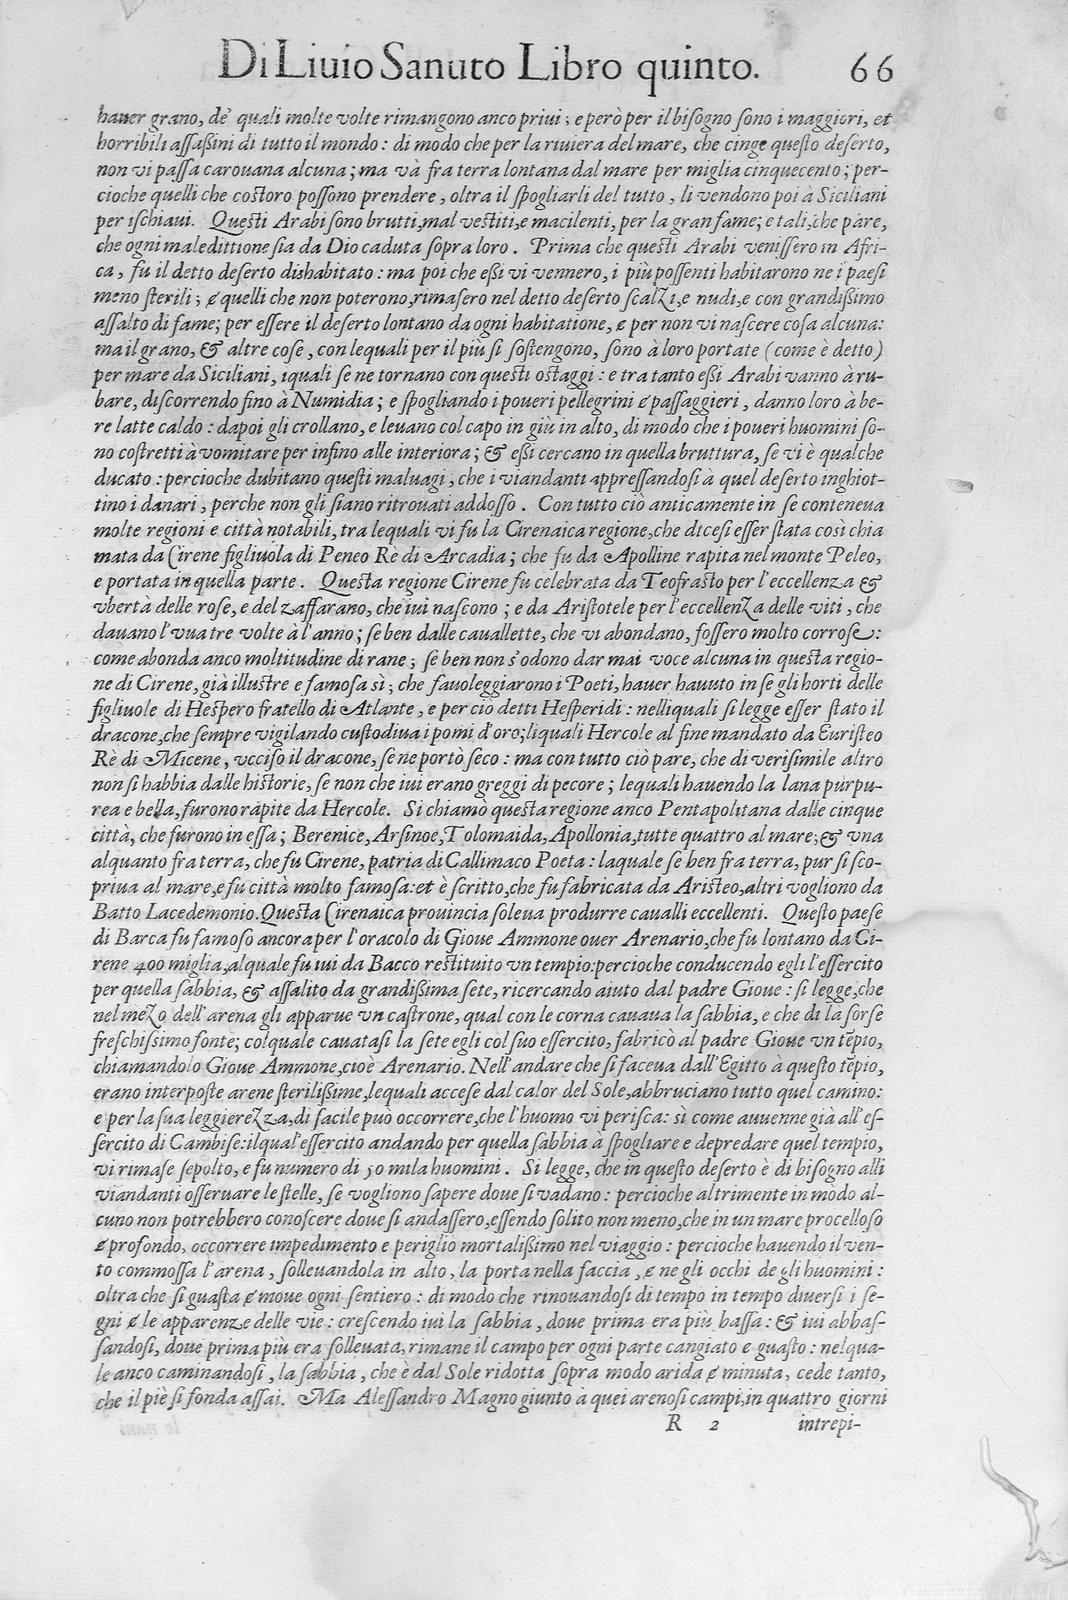 Di Liuio Sanuto Libro quinto. 66
hauer grano, de' quali molte volte rimangono anco priui; e però per il bisogno sono i maggiori, et
horribili assaßini di tutto il mondo: di modo che per la riuiera del mare, che cinge questo deserto,
non vi passa carouana alcuna; ma và fra terra lontana dal mare per miglia cinquecento; per-
cioche quelli che costoro possono prendere, oltra il spogliarli del tutto, li vendono poi à Siciliani
per ischiaui. Questi Arabi sono brutti, mal vestiti, e macilenti, per la gran fame; e tali, che pare,
che ogni maledittione sia da Dio caduta sopra loro. Prima che questi Arabi venissero in Afri-
ca, fu il detto deserto dishabitato: ma poi che eßi vi vennero, i più possenti habitarono ne i paesi
meno sterili; & quelli che non poterono, rimasero nel detto deserto scalzi, e nudi, e con grandißimo
assalto di fame; per essere il deserto lontano da ogni habitatione, & per non vi nascere cosa alcuna:
ma il grano, & altre cose, con lequali per il più si sostengono, sono à loro portate (come è detto)
per mare da Siciliani, iquali se ne tornano con questi ostaggi: e tra tanto eßi Arabi vanno à ru-
bare, discorrendo fino à Numidia; e spogliando i poueri pellegrini & passaggieri, danno loro à be-
re latte caldo: dapoi gli crollano, e leuano col capo in giù in alto, di modo che i poueri huomini so-
no costretti à vomitare per infino alle interiora; & eßi cercano in quella bruttura, se vi è qualche
ducato: percioche dubitano questi maluagi, che i viandanti appressandosi à quel deserto inghiot-
tino i danari, perche non gli siano ritrouati addosso. Con tutto ciò anticamente in se conteneua
molte regioni e città notabili, tra lequali vi fu la Cirenaica regione, che dicesi esser stata così chia
mata da Cirene figliuola di Peneo Rè di Arcadia; che fu da Apolline rapita nel monte Peleo,
e portata in quella parte. Questa regione Cirene fu celebrata da Teofrasto per l'eccellenza &
vbertà delle rose, e del zaffarano, che iui nascono; e da Aristotele per l'eccellenza delle viti, che
dauano l'vua tre volte à l'anno; se ben dalle cauallette, che vi abondano, fossero molto corrose:
come abonda anco moltitudine di rane; se ben non s'odono dar mai voce alcuna in questa regio-
ne di Cirene, già illustre e famosa sì; che fauoleggiarono i Poeti, hauer hauuto in se gli horti delle
figliuole di Hespero fratello di Atlante, e per ciò detti Hesperidi: nelliquali si legge esser stato il
dracone, che sempre vigilando custodiua i pomi d'oro; liquali Hercole al fine mandato da Euristeo
Rè di Micene, vcciso il dracone, se ne portò seco: ma con tutto ciò pare, che di verisimile altro
non si habbia dalle historie, se non che iui erano greggi di pecore; lequali hauendo la lana purpu-
rea e bella, furono rapite da Hercole. Si chiamò questa regione anco Pentapolitana dalle cinque
città, che furono in essa; Berenice, Arsinoe, Tolomaida, Apollonia, tutte quattro al mare; & vna
alquanto fra terra, che fu Cirene, patria di Callimaco Poeta: laquale se ben fra terra, pur si sco-
priua al mare, e fu città molto famosa: et è scritto, che fu fabricata da Aristeo, altri vogliono da
Batto Lacedemonio. Questa Cirenaica prouincia soleua produrre caualli eccellenti. Questo paese
di Barca fu famoso ancora per l'oracolo di Gioue Ammone ouer Arenario, che fu lontano da Ci-
rene 400 miglia, al quale fu iui da Bacco restituito vn tempio: percioche conducendo egli l'essercito
per quella sabbia, & assalito da grandißima sete, ricercando aiuto dal padre Gioue: si legge, che
nel mezo dell'arena gli apparue vn castrone, qual con le corna cauaua la sabbia, e che di là sorse
freschissimo fonte; col quale cauatasi la sete egli col suo essercito, fabricò al padre Gioue vn tēpio,
chiamandolo Gioue Ammone, cioè Arenario. Nell'andare che si faceua dall'Egitto à questo tēpio,
erano interposte arene sterilissime, lequali accese dal calor del Sole, abbruciano tutto quel camino:
e per la sua leggierezza, di facile può occorrere, che l'huomo vi perisca: sì come auuenne già all'es-
sercito di Cambise: il qual essercito andando per quella sabbia à spogliare e depredare quel tempio,
vi rimase sepolto, e fu numero di 50 mila huomini. Si legge, che in questo deserto è di bisogno alli
viandanti osseruare le stelle, se vogliono sapere doue si vadano: percioche altrimente in modo al-
cuno non potrebbero conoscere doue si andassero, essendo solito non meno, che in un mare procelloso
& profondo, occorrere impedimento e periglio mortalißimo nel viaggio: percioche hauendo il ven-
to commossa l'arena, solleuandola in alto, la porta nella faccia, & ne gli occhi de gli huomini:
oltra che si guasta & moue ogni sentiero: di modo che rinouandosi di tempo in tempo diuersi i se-
gni & le apparenze delle vie: crescendo iui la sabbia, doue prima era più bassa: & iui abbas-
sandosi, doue prima più era solleuata, rimane il campo per ogni parte cangiato e guasto: nel qua-
le anco caminandosi, la sabbia, che è dal Sole ridotta sopra modo arida & minuta, cede tanto,
che il piè si fonda assai. Ma Alessandro Magno giunto à quei arenosi campi, in quattro giorni
R 2 intrepi-